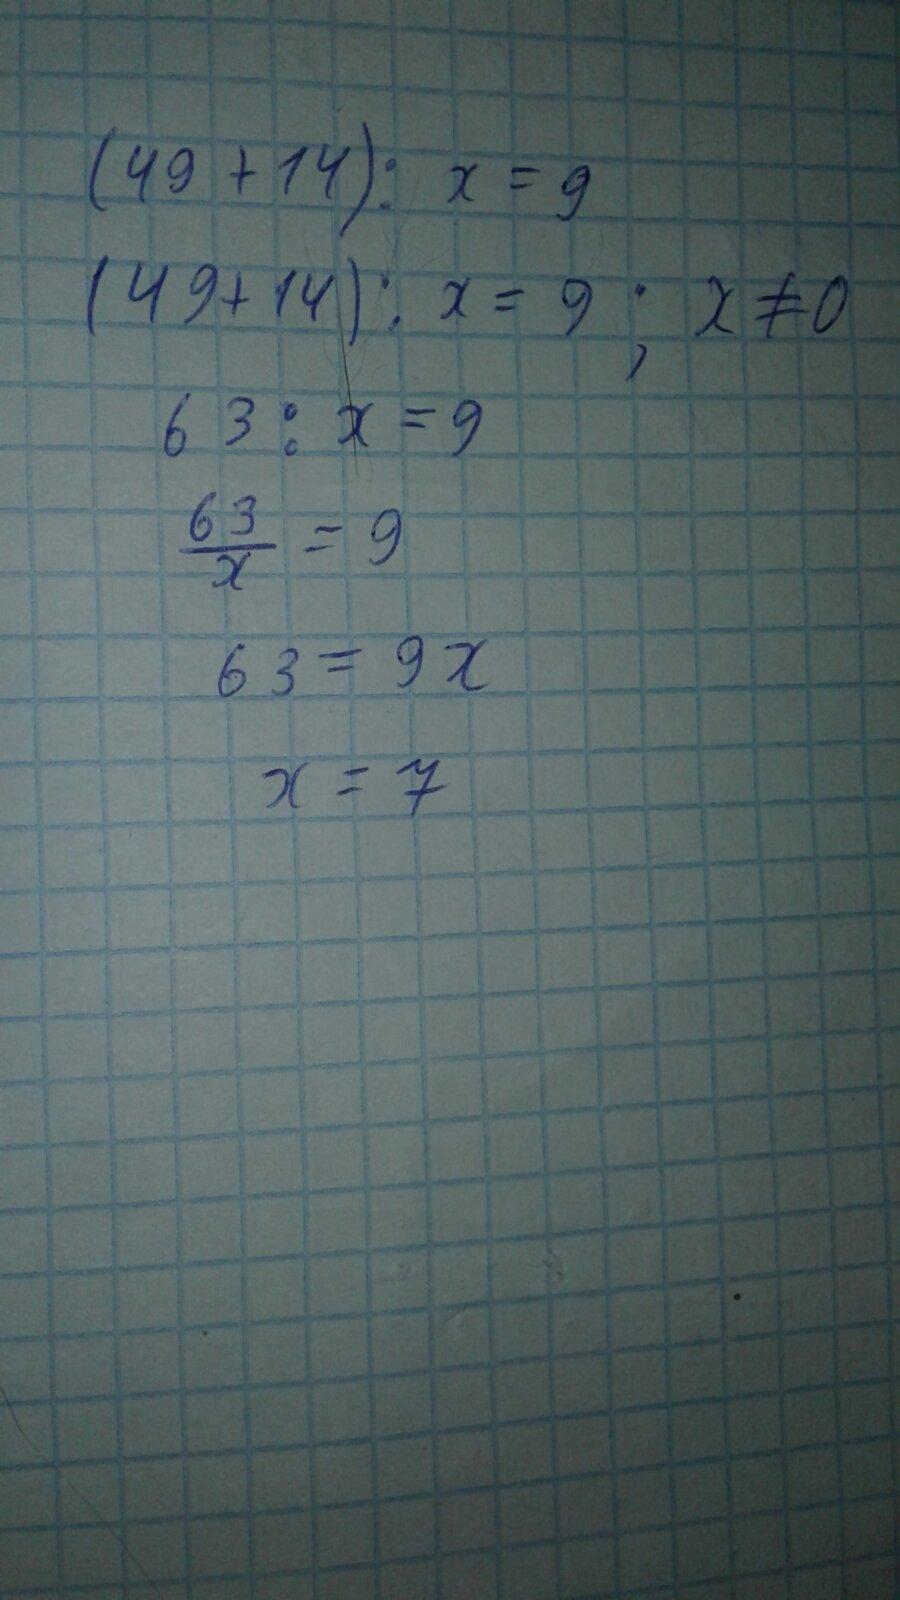 (49 + 14) : x = 9
(49 + 14) : x = 9 ; x ≠ 0
63 : x = 9
63/x = 9
63 = 9x
x = 7